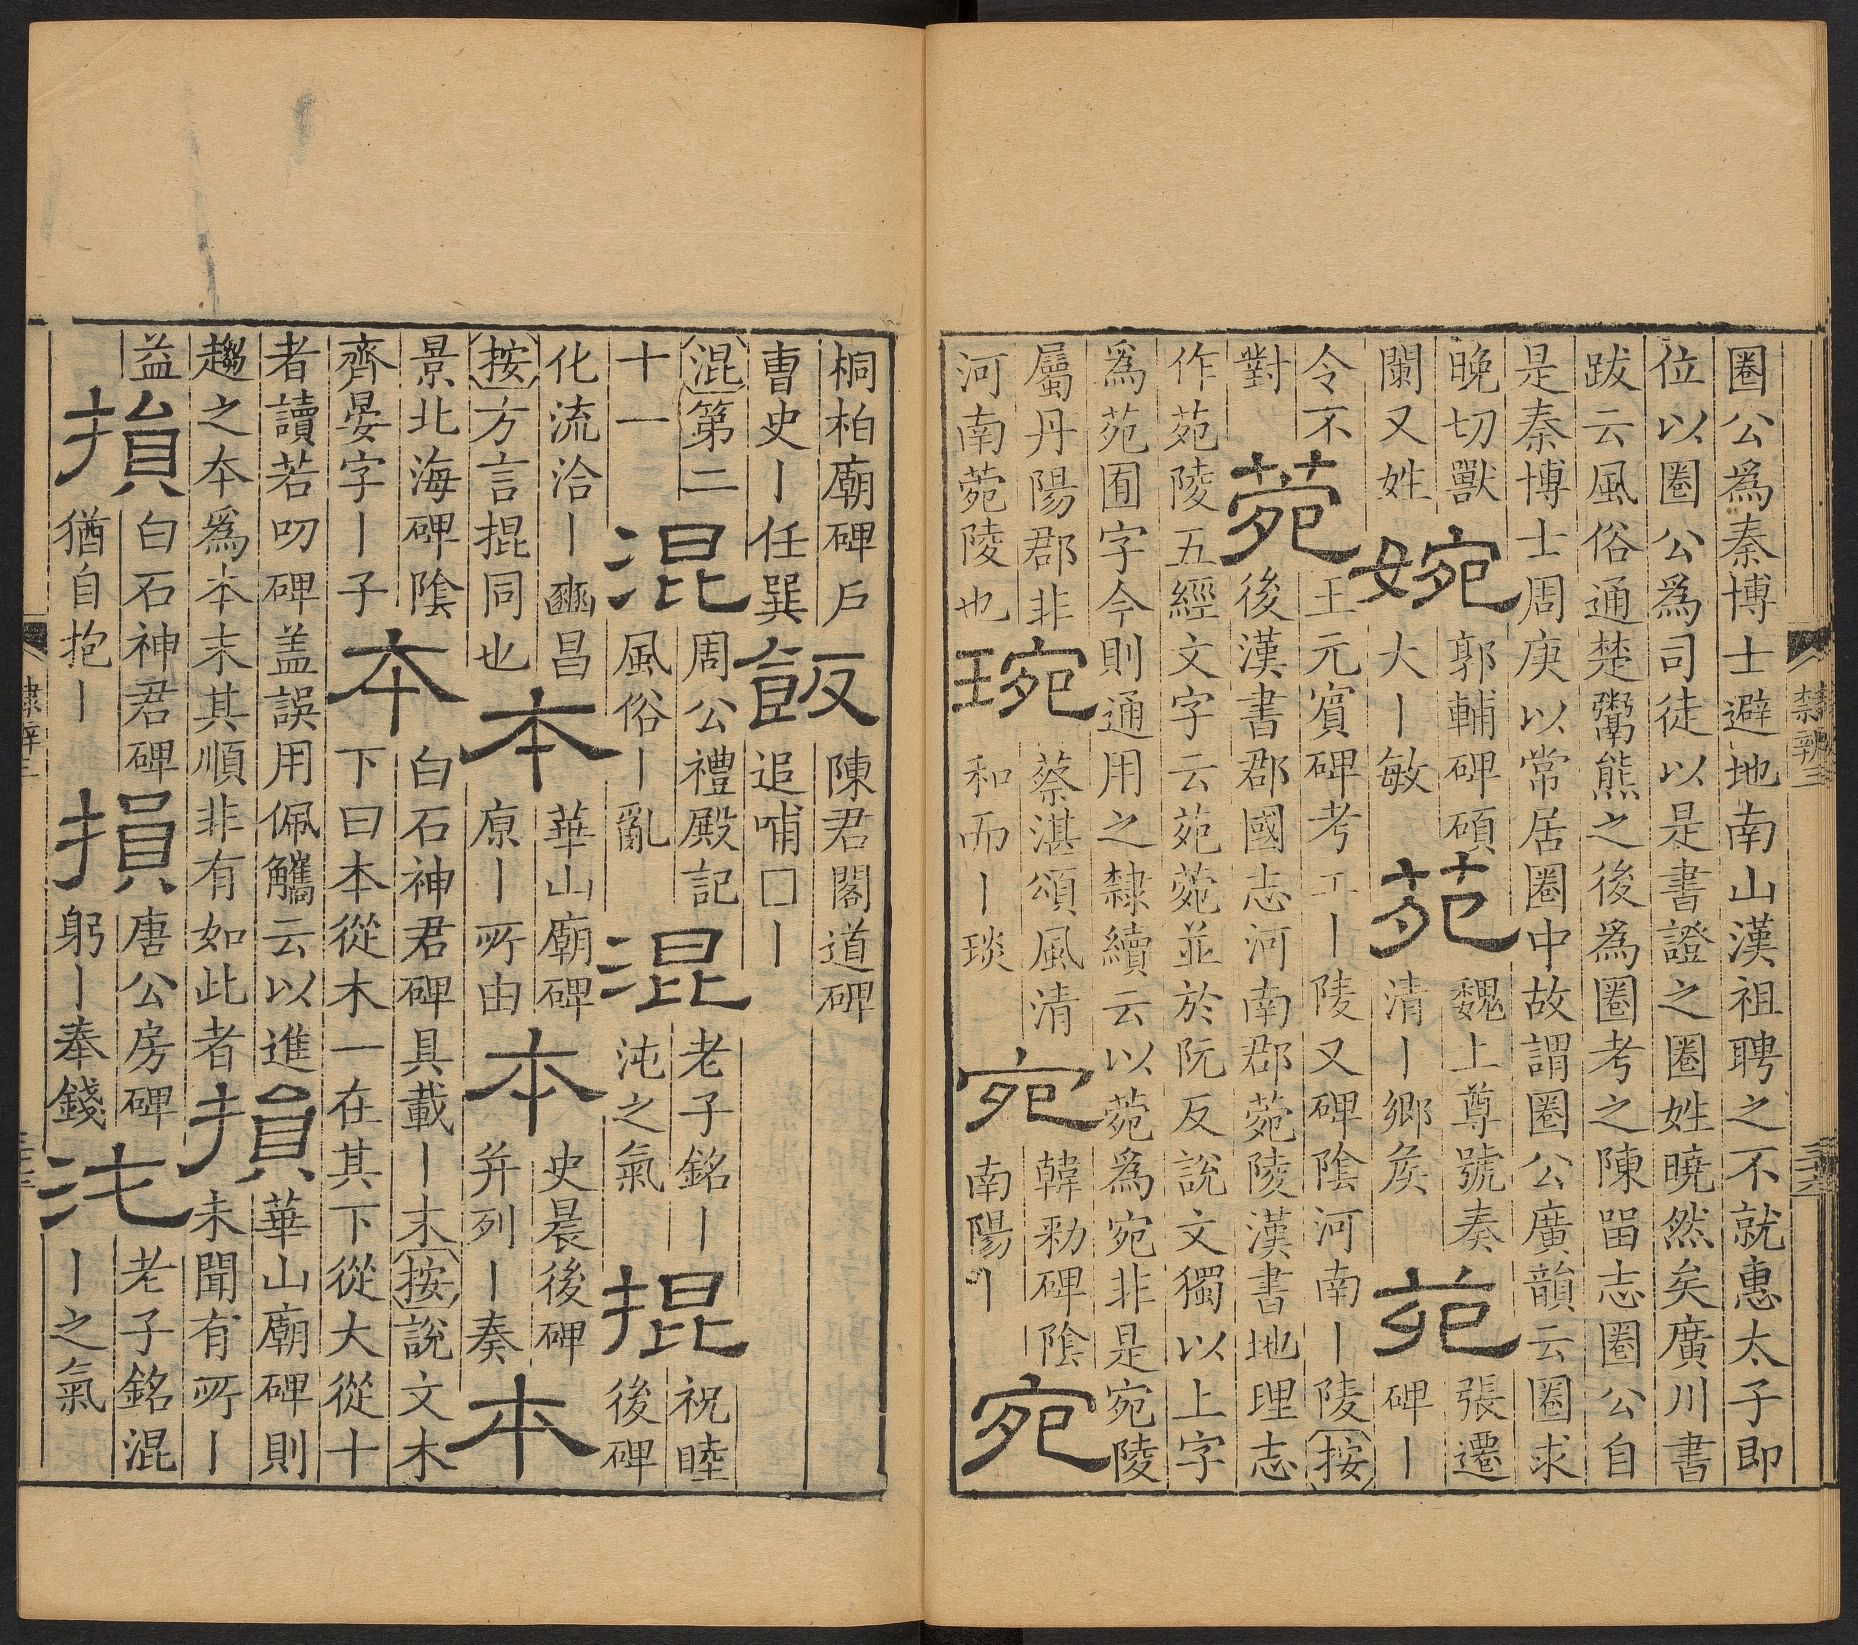 圈公爲秦博士避地南山漢祖聘之不就惠太子即
位以圈公爲司徒以是書證之圈姓曉然矣廣川書
跋云風俗通楚鬻熊之後爲圈考之陳畱志圈公自
是秦博士周庚以常居圈中故謂圈公廣韻云圈求
晚切獸
闌又姓
婉
郭輔碑碩
大丨敏
苑
魏上尊號奏
清丨鄉矦
苑
張遷
碑丨
令不
對
菀
王元賓碑考工丨陵又碑陰河南丨陵按
後漢書郡國志河南郡菀陵漢書地理志
作苑陵五經文字云苑菀並於阮反說文獨以上字
爲苑囿字今則通用之隸續云以菀爲宛非是宛陵
屬丹陽郡非
河南菀陵也
琬
蔡湛頌風清
和而丨琰
宛
韓勑碑陰
南陽丨
宛
隸辨三
桐柏廟碑戶
曹史丨任巽
飯
陳君閣道碑
追哺□丨
混第二
十一
混
周公禮殿記
風俗丨亂
混
老子銘丨
沌之氣
掍
祝睦
後碑
化流洽丨豳昌
按方言掍同也
本
華山廟碑
原丨所由
本
史晨後碑
并列丨奏
本
景北海碑陰
齊晏字丨子
本
白石神君碑具載丨末按說文木
下曰本從木一在其下從大從十
者讀若叨碑盖誤用佩觿云以進
趨之本爲本末其順非有如此者
損
華山廟碑則
未聞有所丨
益
損
白石神君碑
猶自抱丨
損
唐公房碑
躬丨奉錢
沌
老子銘混
丨之氣